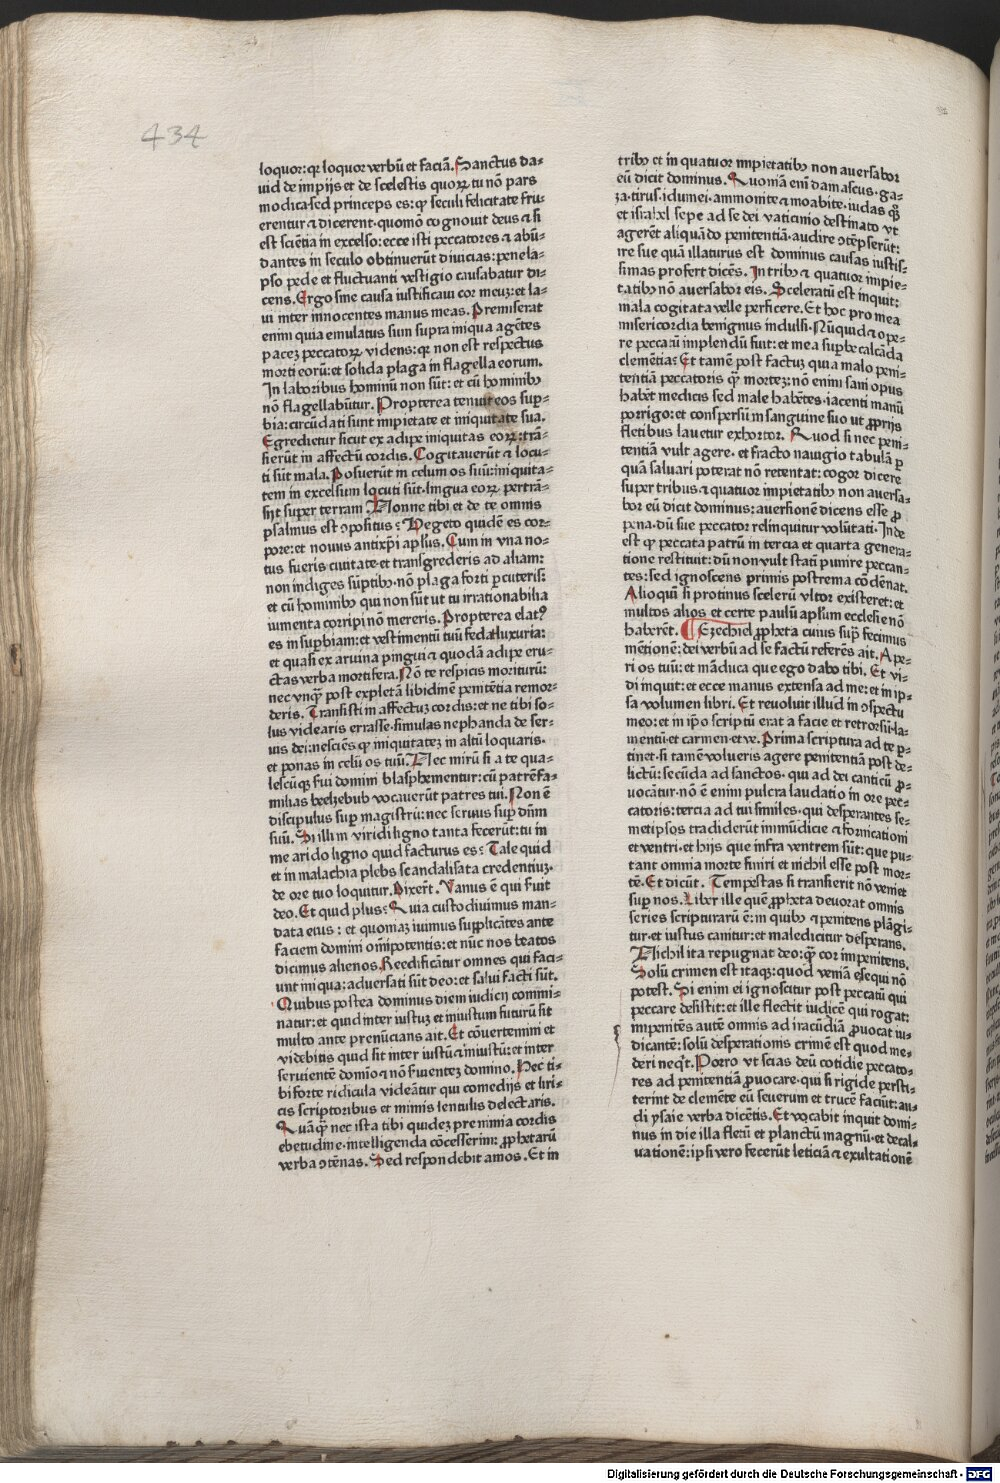 434
loquor: qꝛ loquor verbū et faciā. Sanctus da-
uid de impijs et de scelestis quoꝝ tu nō pars
modica sed princeps es: qꝫ seculi felicitate fru-
erentur ⁊ dicerent. quomō cognouit deus ⁊ si
est sciētia in excelso: ecce isti peccatores ⁊ abū-
dantes in seculo obtinuerūt diuicias: pene la-
pso pede et fluctuanti vestigio causabatur di-
cens. Ergo sine causa iustificaui cor meuꝫ: et la-
ui inter innocentes manus meas. Premiserat
enim quia emulatus sum supra iniqua agētes
paceꝫ peccatoꝝ videns: qꝛ non est respectus
morti eorū: et solida plaga in flagella eorum.
In laboribus hominū non sūt: et cū hominibꝫ
nō flagellabūtur. Propterea tenuit eos sup-
bia: circūdati sunt impietate et iniquitate sua.
Egredietur sicut ex adipe iniquitas eoꝝ: trā-
sierūt in affectū cordis. Cogitauerūt ⁊ locu-
ti sūt mala. Posuerūt in celum os suū: iniquita-
tem in excelsum locuti sūt. lingua eoꝝ pertrā-
sijt super terram. Nonne tibi et de te omnis
psalmus est ɔpositus: Vegeto quidē es cor-
pore: et nouus antixp̄i apl̄us. Cum in vna no-
tus fueris ciuitate et transgrederis ad aliam:
non indiges sūptibꝫ. nō plaga forti ꝑcuteris:
et cū hominibꝫ qui non sūt ut tu irrationabilia
iumenta corripi nō mereris. Propterea elatꝰ
es in supbiam: et vestimentū tuū feda luxuria:
et quasi ex aruina pingui ⁊ quodā adipe eru-
ctas verba mortifera. Nō te respicis moriturū:
nec vnqꝫ post expletā libidinē penitētia remor-
deris. Transisti in affectuꝫ cordis: et ne tibi so-
lus videaris errasse. simulas nephanda de ser-
uis dei: nesciēs qꝫ iniquitateꝫ in altū loquaris.
et ponas in celū os tuū. Nec mirū si a te qua-
lescūqꝫ s̄ui domini blasphementur: cū patrēfa-
milias beelzebub vocauerūt patres tui. Non ē
discipulus sup magistrū: nec seruus sup dn̄m
suū. Si illi in viridi ligno tanta fecerūt: tu in
me arido ligno quid facturus es: Tale quid
et in malachia plebs scandalisata credentiuꝫ.
de ore tuo loquitur. Dixerūt. Vanus ē qui s̄uit
deo. Et quid plus: Quia custodiuimus man-
data eius: et quoniaꝫ iuimus supplicātes ante
faciem domini om̄ipotentis: et nūc nos beatos
dicimus alienos. Reedificātur omnes qui faci-
unt iniqua: aduersati sūt deo: et salui facti sūt.
Quibus postea dominus diem iudicij commi-
natur: et quid inter iustuꝫ et iniustum futurū sit
multo ante prenūcians ait. Et cōuertemini et
videbitis quid sit inter iustū ⁊ iniustū: et inter
seruientē domīo ⁊ nō s̄uienteꝫ domino. Hec ti-
bi forte ridicula videātur qui comedijs et liri-
cis scriptoribus et mimis lentulis delectaris.
Quāqꝫ nec ista tibi quideꝫ pre nimia cordis
ebetudine. intelligenda cōcesserim: ꝓphetarū
verba ɔtēnas. Sed respondebit amos. Et in
tribꝫ et in quatuor impietatibꝫ non auersabor
eū dicit dominus. Quoniā eni damascus. ga-
za. tirus. idumei. ammonite ⁊ moabite. iudas qꝫ
et israhel sepe ad se dei vaticinio destinato vt
agerēt aliquādo penitentiā. audire ɔtēpserūt:
ire sue quā illaturus est dominus causas iustis-
simas profert dicēs. In tribꝫ ⁊ quatuor impie-
tatibꝫ nō auersabor eis. Sceleratū est inquit:
mala cogitata velle perficere. Et hoc pro mea
misericordia benignus indulsi. Nūquid ⁊ ope-
re peccatū implendū fuit: et mea supbe calcāda
clemētia: Et tamē post factuꝫ quia malo peni-
tentiā peccatoris qꝫ morteꝫ: nō enim sani opus
habēt medicis sed male habētes. iacenti manū
porrigo: et conspersū in sanguine suo ut ꝓprijs
fletibus lauetur exhortor. Quod si nec peni-
tentiā vult agere. et fracto nauigio tabulā ꝑ
quā saluari poterat nō retentat: cogor dicere
super tribus ⁊ quatuor impietatibꝫ non auersa-
bor eū dicit dominus: auersionē dicens esse ꝓ
pena. dū sue peccator relinquitur volūtati. Inde
est qꝫ peccata patrū in tercia et quarta genera-
tione restituit: dū non vult statī punire peccan-
tes: sed ignoscens primis postrema cōdēnat.
Alioquī si protinus scelerū vltor existeret: et
multos alios et certe paulū apl̄um ecclesie nō
haberēt. ¶ Ezechiel ꝓpheta cuius supꝰ fecimus
mētionē: dei verbū ad se factū referēs ait. Ape-
ri os tuū: et māduca que ego dabo tibi. Et vi-
di inquit: et ecce manus extensa ad me: et in ip-
sa volumen libri. Et reuoluit illud in ɔspectu
meo: et in ip̄o scriptū erat a facie et retrorsū: la-
mentū et carmen et ve. Prima scriptura ad te ꝑ-
tinet. si tamē volueris agere penitentiā post de-
lictū: secūda ad sanctos. qui ad dei canticū ꝓ-
uocātur. nō ē enim pulcra laudatio in ore pec-
catoris: tercia ad tui similes. qui desperantes se-
metipsos tradiderūt immūdicie ⁊ fornicationi
et ventri. et hijs que infra ventrem sūt: que pu-
tant omnia morte finiri et nichil esse post mor-
tē. Et dicūt. Tempestas si transierit nō veniet
sup nos. Liber ille quē ꝓpheta deuorat omnis
series scripturarū ē: in quibꝫ ⁊ penitens plāgi-
tur. et iustus canitur: et maledicitur desperans.
Nichil ita repugnat deo: qꝫ cor impenitens.
Solū crimen est itaqꝫ: quod veniā ɔsequi nō
potest. Si enim ei ignoscitur post peccatū qui
peccare desistit: et ille flectit iudicē qui rogat:
impenitēs autē omnis ad iracūdiā ꝓuocat iu-
dicantē: solū desperationis crimē est quod me-
deri neqꝛ̄t. Porro vt scias deū cotidie peccato-
res ad penitentiā ꝓuocare. qui si rigide persti-
terint de clemēte eū seuerum et trucē faciūt: au-
di ysaie verba dicētis. Et vocabit inquit domi-
nus in die illa fletū et planctū magnū. et decal-
uationē: ipsi vero fecerūt leticiā ⁊ exultationē
Digitalisierung gefördert durch die Deutsche Forschungsgemeinschaft - DFG